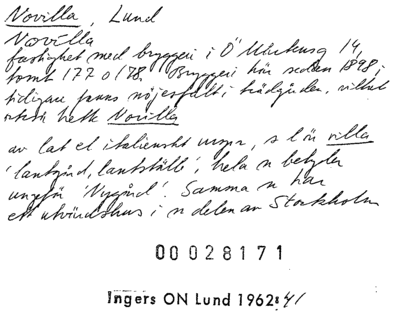 Novilla, Lund
Novilla
fastighet med bryggeri i Ö Mårtensg 14,
tomt 177 o 178. Bryggeri här sedan 1898;
tidigare fanns nöjesfält i trädgården, vilket
också hette Novilla
av lat el italienskt urspr, s l ön villa
'lantgård, lantställe', hela n betyder
ungefär 'Nygård'. Samma n har
ett utvärdshus i n delen av Stockholm
00028171
Ingers ON Lund 1962:41